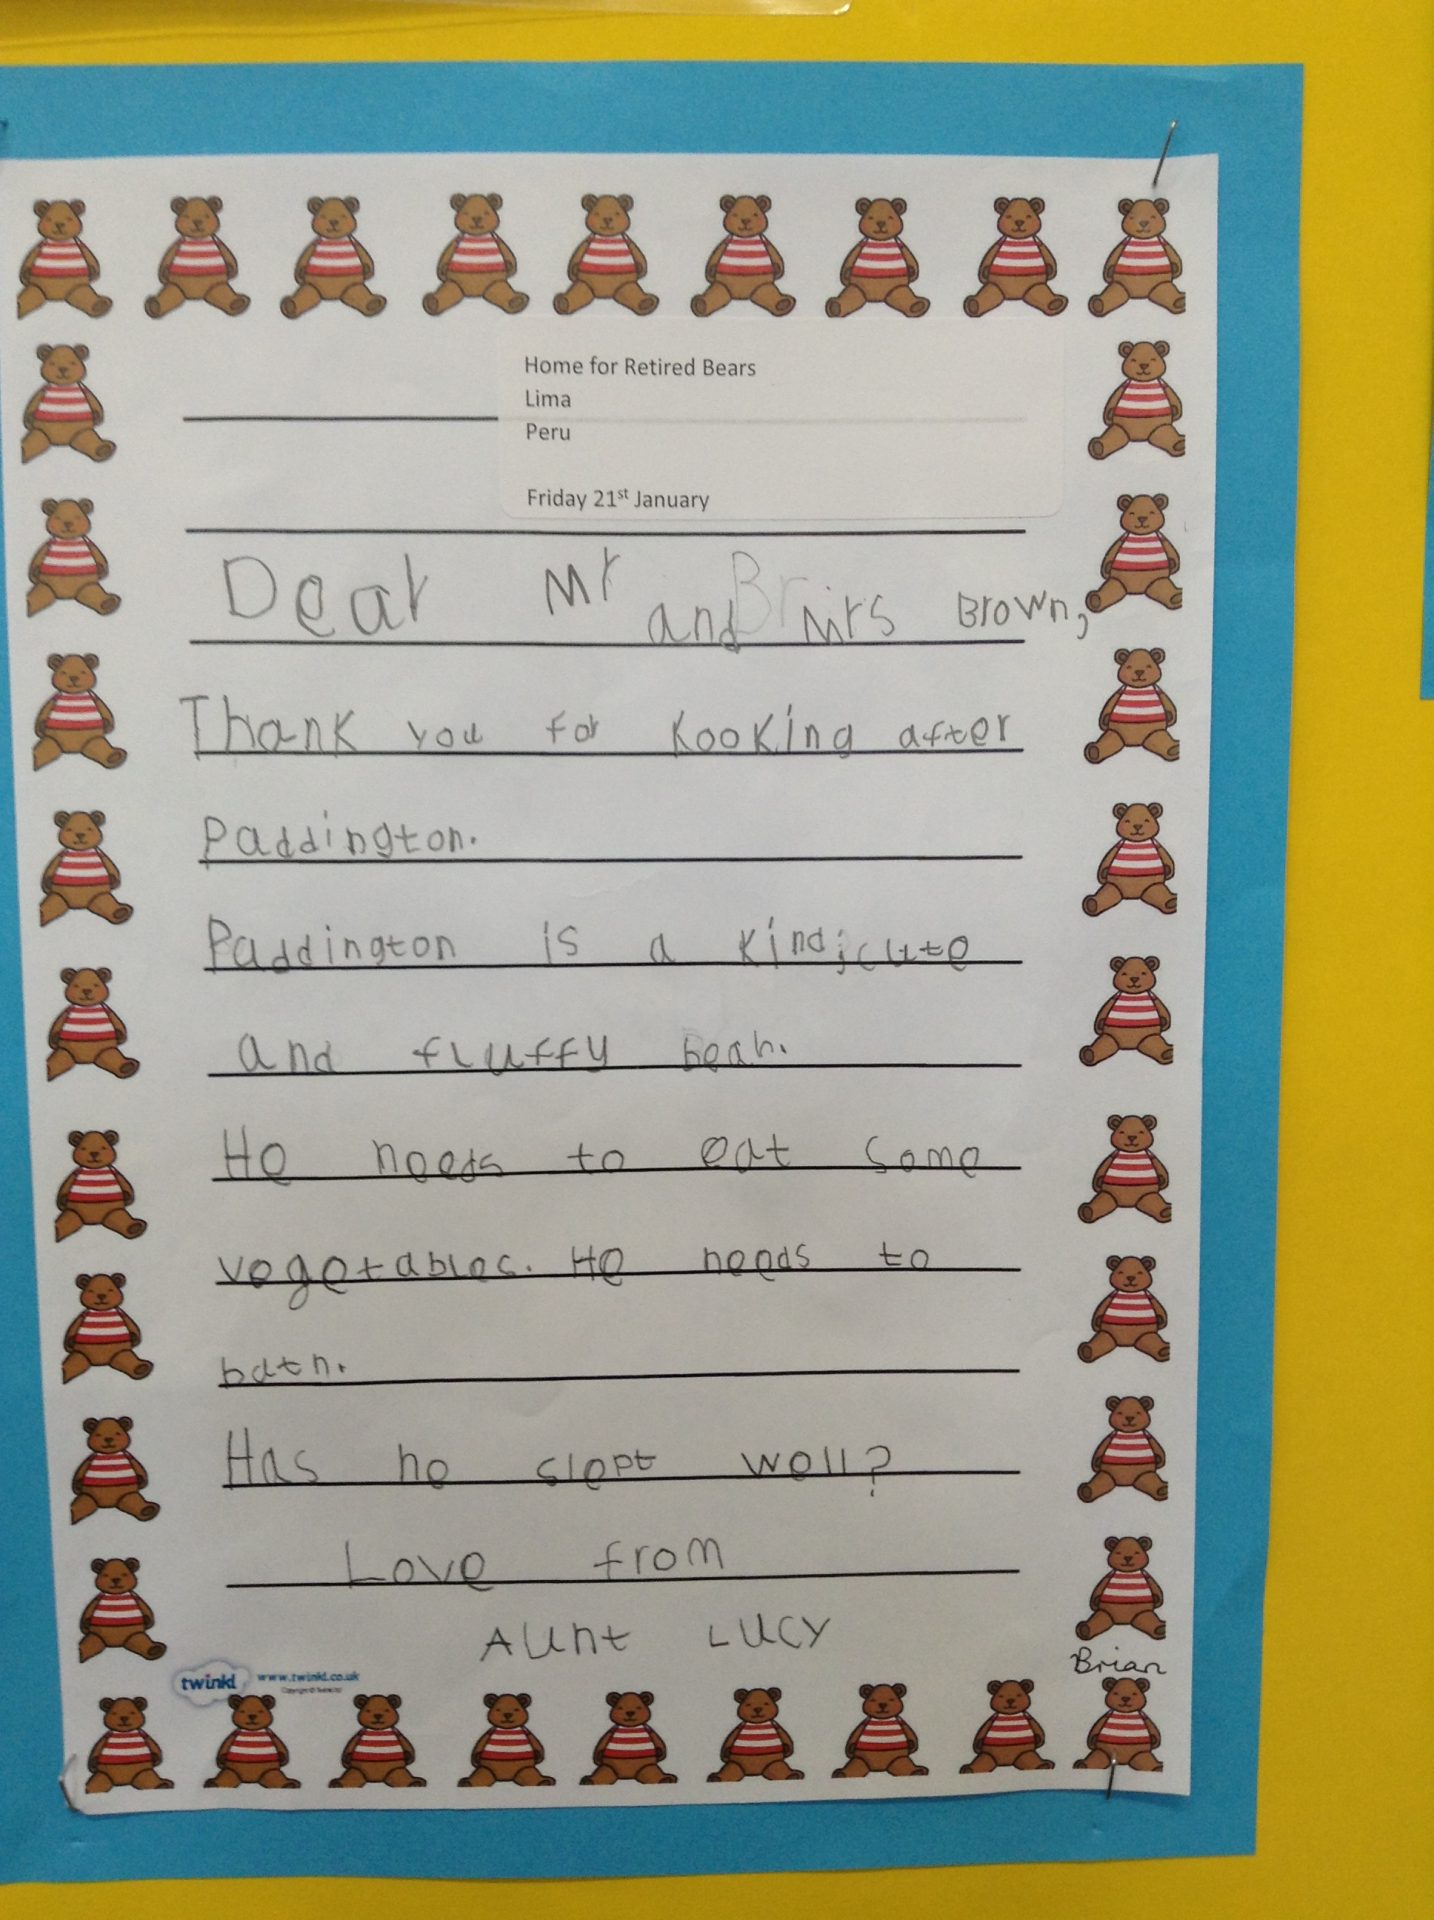 Home for Retired Bears
Lima
Peru
Friday 21st January
Dear Mr and Mrs Brown,
Thank you for Kooking after
Paddington.
Paddington is a kind, cute
and fluffy beah.
He needs to eat some
vegetables. He needs to
bath.
Has he slept well?
Love from
Aunt Lucy
Brian
twinkl www.twinkl.co.uk